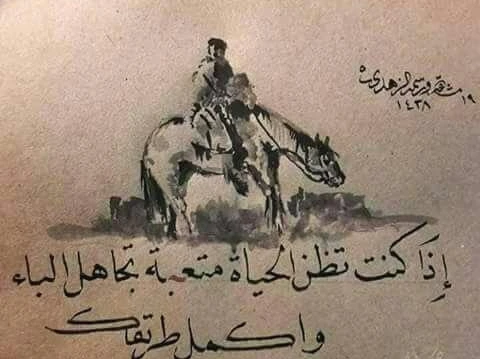 الزهدي
١٤٣٨
إِذَا كنت تظن الحياة متعبة تجاهل الباء
واكمل طريقك